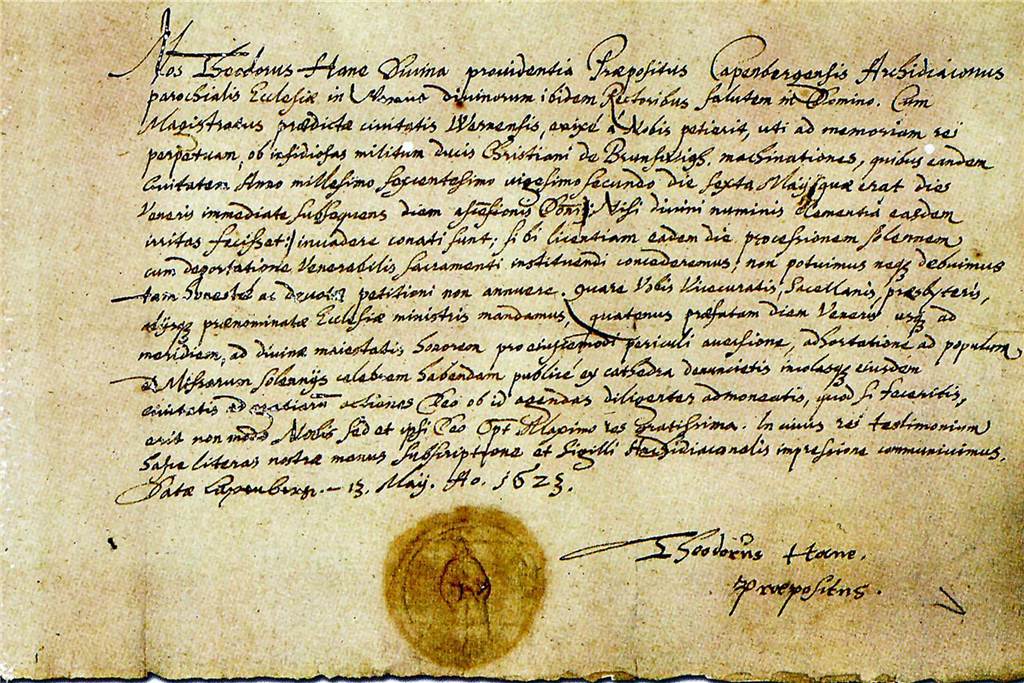 Nos Theodorus Hane Divina providentia Præpositus Capenbergensis Archidiaconus
parochialis Ecclesiæ in Werne divinorum ibidem Rectoribus salutem in Domino. Cum
Magistratus prædictæ civitatis Wernensis, enixé á Nobis petierit, uti ad memoriam rei
perpetuam, ob insidiosas militum ducis Christiani de Brunswigh. machinationes, quibus eandem
Civitatem Anno millesimo sexcentesimo vigesimo secundo die sexta Maij (quæ erat dies
Veneris immediate subsequens diem ascensionis Dom̃i: Nisi divini numinis Clementia easdem
irritas fecisset:) invadere conati sunt; sibi licentiam eadem die processionem solennem
cum deportatione Venerabilis Sacramenti instituendi concederemus; non potuimus neqz debuimus
tam honestæ ac devotæ petitioni non annuere. Quare Vobis Vicecuratis, Sacellanis, præsbyteris,
alijsqz prænominatæ Ecclesiæ ministris mandamus, quatenus præfatam diem Veneris usqz ad
meridiem, ad divinæ maiestatis honorem pro eiusmodi periculi aversione, adhortatione ad populum
et Missarum solennijs celebrem habendam publice ex cathedra denuncietis incolasqz eiusdem
civitatis ad gratiarum actiones Deo ob id agendas diligenter admoneatis, quod si feceritis,
erit non modo Nobis sed et ipsi Deo Opt. Maximo res gratissima. In cuius rei testimonium
hasce literas nostræ manus subscriptione et Sigilli Archidiaconalis impressione communivimus.
Datæ Capenberg. - 13. Maij. Ao. 1623.
Theodorus Hane.
Præpositus.